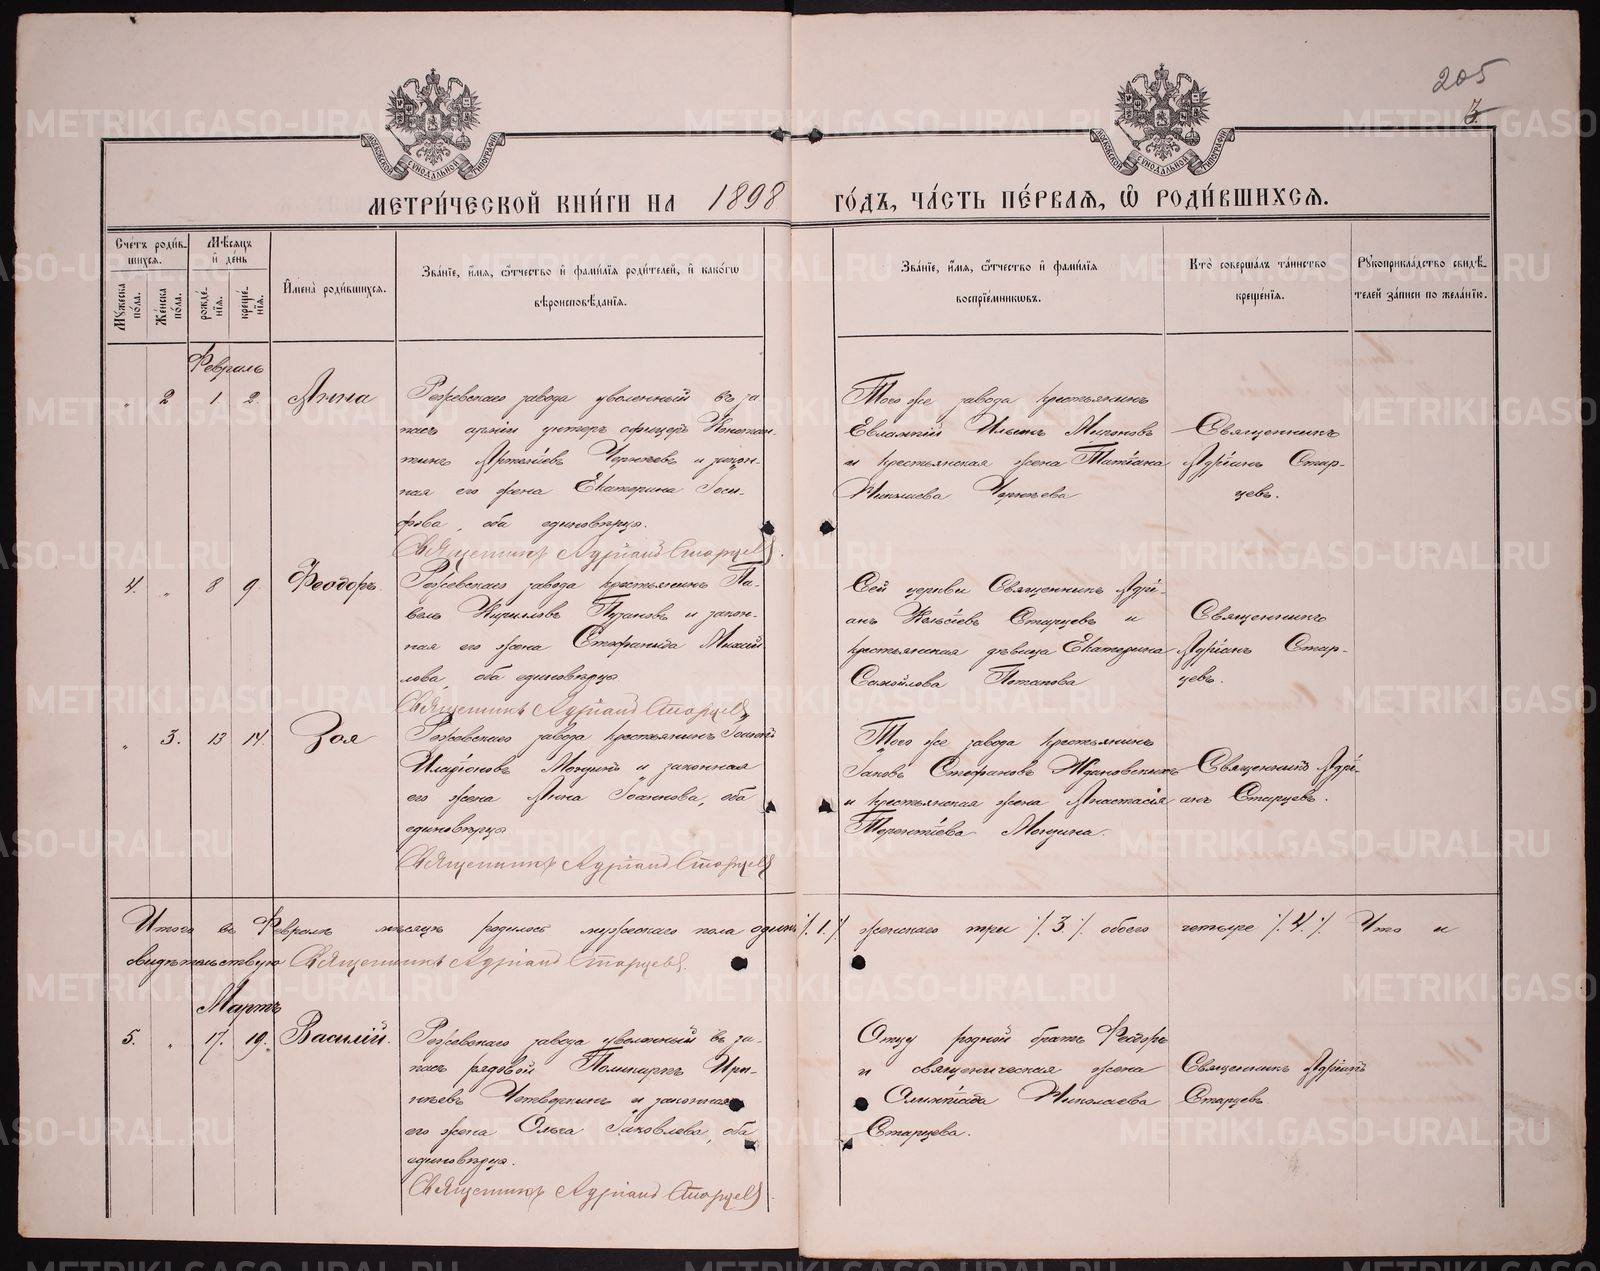 205
3.
МОСКОВСКОЙ СУНОДАЛЬНОЙ ТИПОГРАФІИ
МОСКОВСКОЙ СУНОДАЛЬНОЙ ТИПОГРАФІИ
МЕТРИ́ЧЕСКОЙ КНИ́ГИ НА 1898 ГО́ДЪ, ЧА́СТЬ ПЕ́РВАЯ, Ѿ РОДИ́ВШИХСЯ.
Сче́тъ роди́в-
шихся.
Му́жеска по́ла.
Же́нска по́ла.
Мѣ́сяцъ
и҆ де́нь
рожде́-
нїя.
креще́-
нїя.
И҆мена̀ роди́вшихся.
Зва́нїе, и҆́мя, ѻ҆́тчество и҆ фами́лїя роди́телей, и҆ како́гѡ
вѣроисповѣ́данїя.
Зва́нїе, и҆́мя, ѻ҆́тчество и҆ фами́лїя
воспрїе́мникѡвъ.
Кто̀ соверша́лъ та́инство
креще́нїя.
Рꙋкоприкла́дство свидѣ́-
телей за́писи по жела́нїю.
Февраль
" 2 1 2. Анна
Режевскаго завода уволенный въ за
пасъ арміи унтеръ офицеръ Констан-
тинъ Артемiевъ Черепевъ и закон-
ная его жена Екатерина Іоси-
фова, оба единовѣрцы.
Священникъ Адріанъ Старцевъ.
Того же завода крестьянинъ
Евлампій Ильинъ Мироновъ
и крестьянская жена Татіана
Черепева
Священникъ
Адріанъ Стар-
цевъ.
4. " 8 9. Феодоръ.
Режевскаго завода крестьянинъ Па-
велъ Кириловъ Пузановъ и закон-
ная его жена Стефанида Михай
лова оба единовѣрцы
Священникъ Адріанъ Старцевъ
Сей церкви Священникъ Адрі-
анъ Старцевъ и
крестьянская дѣвица Екатерина
Самойлова Потапова
Священникъ
Адріанъ Стар-
цевъ.
" 3. 13 14. Зоя
Режевскаго завода крестьянинъ
Иларіоновъ и законная
его жена Анна Іоаннова, оба
единовѣрцы
Священникъ Адріанъ Старцевъ
Того же завода крестьянинъ
Іаковъ Стефановъ Ждановскихъ
и крестьянская жена Анастасія
Терентіева
Священникъ Адрі-
анъ Старцевъ.
Итого въ Февралѣ мѣсяцѣ родилось мужескаго пола одинъ /. 1. /. женскаго три /. 3 /. обоего четыре /. 4. /. Что и
свидѣтельствую Священникъ Адріанъ Старцевъ.
Мартъ
5. " 17. 19. Василій.
Режевскаго завода уволенный въ за-
пасъ рядовой Поликарпъ Ири-
нѣевъ Четверкинъ и законная
его жена Ольга Іаковлева, оба
единовѣрцы.
Священникъ Адріанъ Старцевъ.
Отцу родной братъ Феодоръ
и священническая жена
Олимпіада Николаева
Старцева.
Священникъ Адріанъ
Старцевъ
METRIKI.GASO-URAL.RU